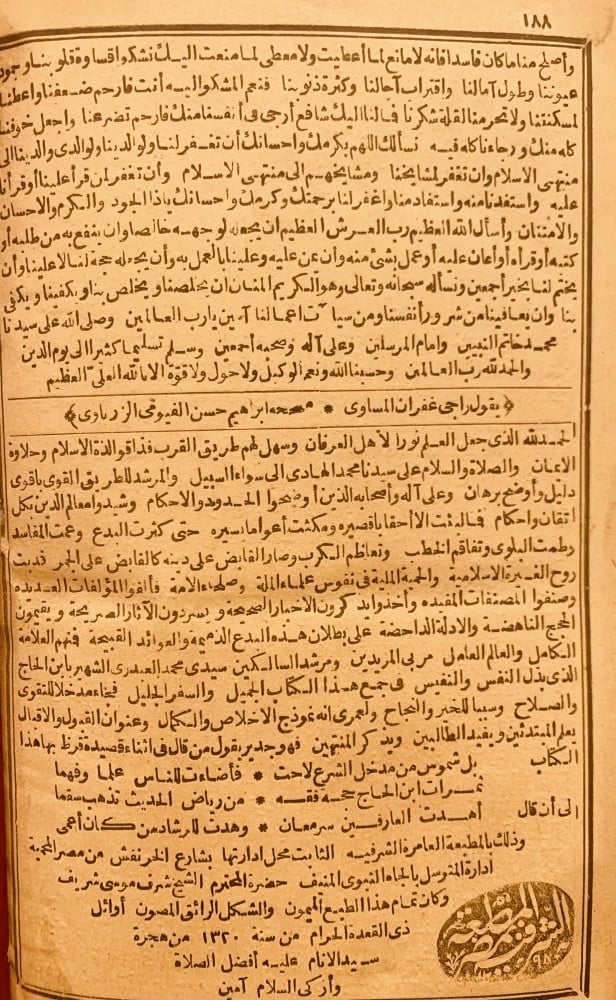 ١٨٨
وأصلح منا ما كان فاسدا فانه لا مانع لما أعطيت ولا معطى لما منعت اليك نشكو اقساوة قلوبنا وجود
عيوننا وطول آمالنا واقتراب آجالنا وكثرة ذنوبنا فنعم المشكو اليه أنت فارحم ضعفنا واعطنا
لمسكنتنا ولا تحرمنا لقلة شكرنا فمالنا اليك شافع أرجى فى أنفسنا منك فارحم تضرعنا واجعل خوفنا
كله منك ورجاءنا كله فيه نسألك اللهم بكرمك واحسانك أن تغفر لنا ولوالدينا ولوالدى والدينا الى
منتهى الاسلام وان تغفر لمشايخنا ومشايخهم الى منتهى الاسلام وأن تغفر لمن قرأ علينا أو قرأنا
عليه واستفدنا منه واستفاد منا واغفر لنا برحمتك وكرمك واحسانك ياذا الجود والكرم والاحسان
والامتنان وأسأل الله العظيم رب العرش العظيم أن يجعله لوجهه خالصا وان ينفع به من طلبه أو
كتبه أو قرأه أو أعان عليه أو عمل بشئ منه وأن عن عليه وعلينا بالعمل به وأن يجعله حجة لنا لا علينا وأن
يختم لنا بخير أجمعين ونسأله سبحانه وتعالى وهو الكريم المنان ان يخلصنا ويخلص بنا ويكفينا ويكفى
بنا وان يعافينا من شرور أنفسنا ومن سيات اعمالنا آمين يارب العالمين وصلى الله على سيدنا
محمد خاتم النبيين وامام المرسلين وعلى آله وصحبه أجمعين وسلم تسليما كثيرا الى يوم الدين
والحمد لله رب العالمين وحسبنا الله ونعم الوكيل ولا حول ولا قوة الا بالله العلى العظيم
﴿ يقول راجى غفران المساوى * مصححه ابراهيم حسن الفيومى الزرباوى ﴾
الحمد لله الذى جعل العلم نورا لأهل العرفان وسهل لهم طريق القرب فذاقوا لذة الاسلام وحلاوة
الايمان والصلاة والسلام على سيدنا محمد الهادى الى سواء السبيل والمرشد للطريق القوى باقوى
دليل وأوضح برهان وعلى آله وأصحابه الذين أوضحوا الحدود والاحكام وشيدوا معالم الدين بكل
اتقان واحكام فما لبثت الا أحقابا قصيره ومكثت أعواما يسيره حتى كثرت البدع وعمت المفاسد
وطمت البلوى وتفاقم الخطب وتعاظم الكرب وصار القابض على دينه كالقابض على الجمر فدبت
روح الغيرة الاسلاميه والحمية المليه فى نفوس علماء الملة وصلحاء الامة فألفوا المؤلفات العديده
وصنفوا المصنفات المفيده وأخذوا يذكرون الاخبار الصحيحة ويسردون الآثار الصريحة ويقيمون
الحجج الناهضة والادلة الداحضة على بطلان هذه البدع الذميمة والعوائد القبيحة فمنهم العلامة
الكامل والعالم العامل مربى المريدين ومرشد السالكين سيدى محمد العبدرى الشهير بابن الحاج
الذى بذل النفس والنفيس فى جمع هذا الكتاب الجميل والسفر الجليل فجاء مدخلا للتقوى
والصلاح وسببا للخير والنجاح ولعمرى انه نموذج الاخلاص والكمال وعنوان القبول والاقبال
يعلم المبتدئين ويفيد الطالبين ويذكر المنتهين فهو جدير بقول من قال فى اثناء قصيدة قرظ بها هذا
الكتاب بل شموس من مدخل الشرع لاحت * فأضاءت للناس علما وفهما
ثمرات ابن الحاج حجه فقه * من رياض الحديث تذهب سقما
الى أن قال أهدت العارفين سر معان * وهدت للرشاد من كان أعمى
وذلك بالمطبعة العامرة الشرفيه الثابت محل ادارتها بشارع الخرنفش من مصر المحمية
ادارة المتوسل بالجاه النبوى المنيف حضرة المحترم الشيخ شرف موسى شريف
وكان تمام هذا الطبع الميمون والشكل الرائق المصون أوائل
ذى القعدة الحرام من سنة ١٣٢٠ من هجرة
سيد الانام عليه أفضل الصلاة
وأزكى السلام آمين